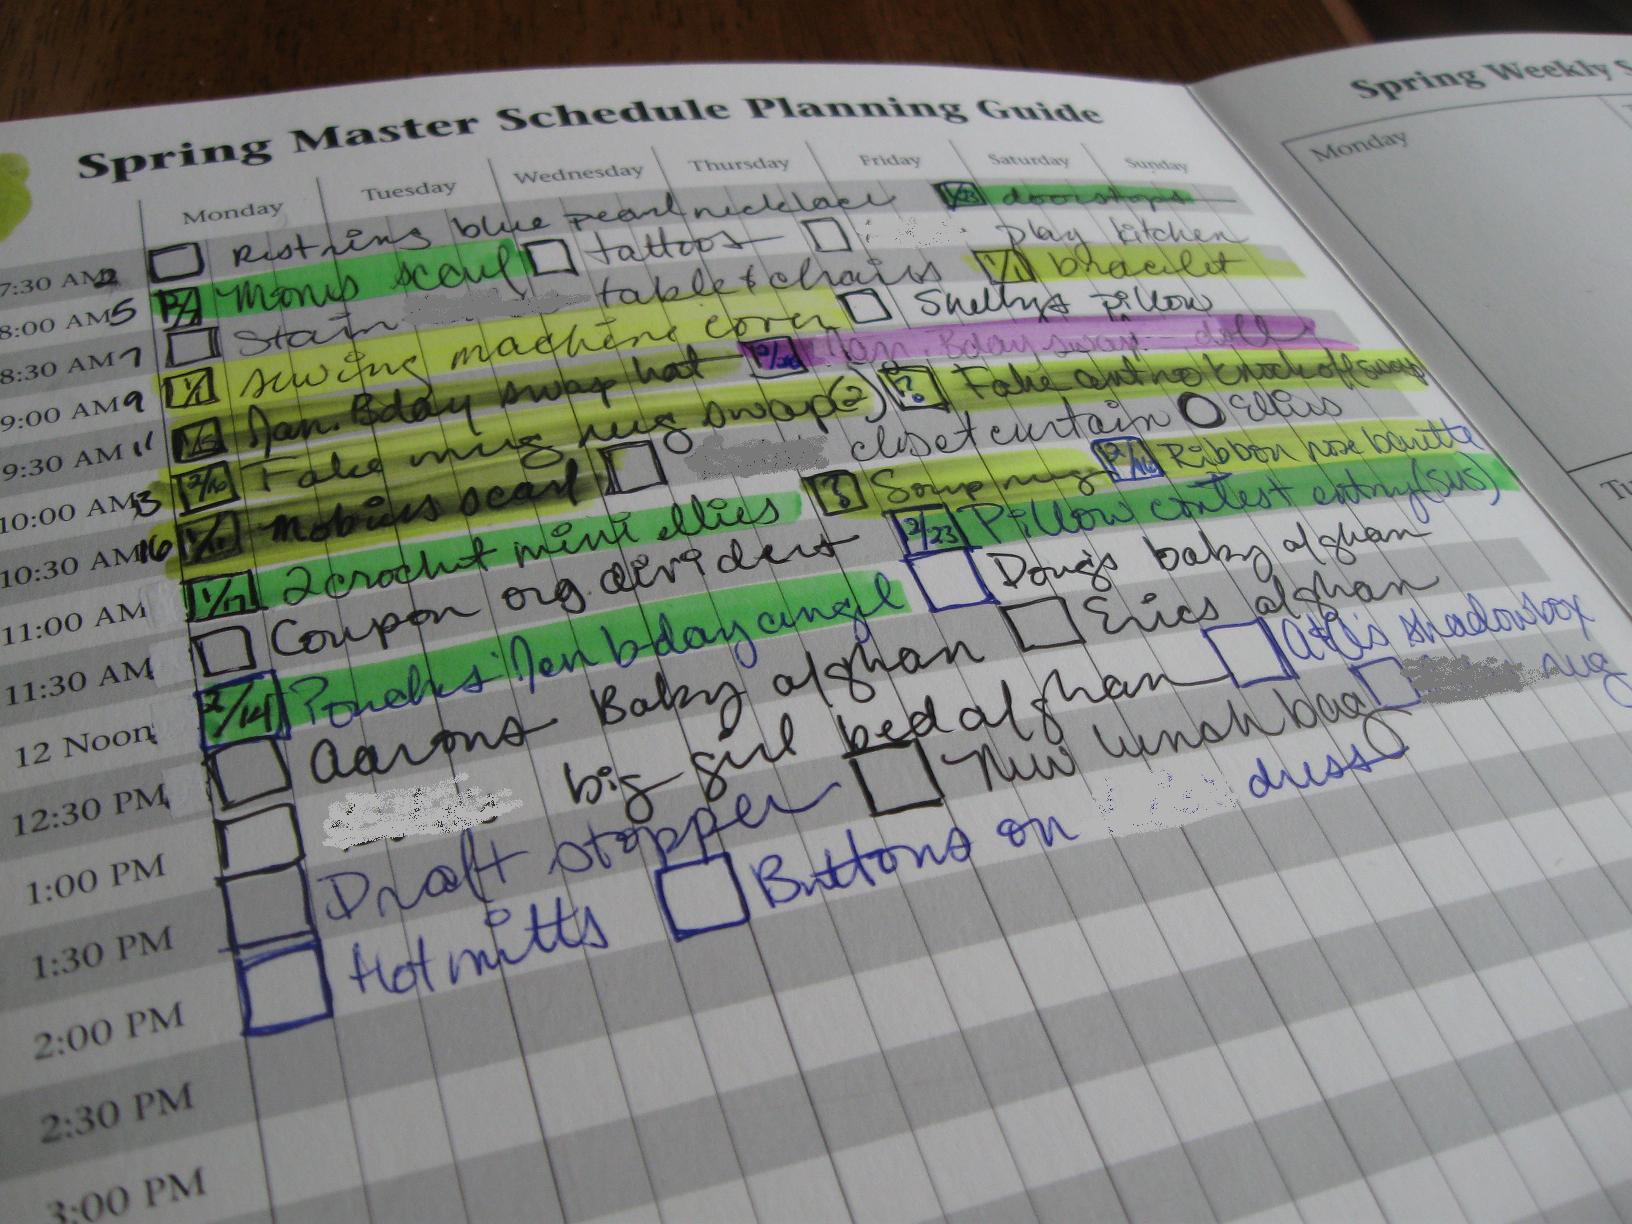 Spring Master Schedule Planning Guide
Monday Tuesday Wednesday Thursday Friday Saturday Sunday
Restring blue pearl necklace 1/23 doorstops
7:30 AM 2 Moms scarf tattoos play kitchen
8:00 AM 5 Stain table & chairs 1/1 bracelet
8:30 AM 7 1/1 sewing machine cover Shellys pillow
9:00 AM 9 Jan. Bday swap hat Jan. Bday swap doll
9:30 AM 11 2/16 Fake mug rug swap (2) ? Fake knock off swap
10:00 AM 13 1/1 Mobius scarf closet curtain Ellius
10:30 AM 16 1/17 2 crochet mini ellies ? Soup mug Ribbon rose barette
11:00 AM Coupon org. dividers 2/23 Pillow contest entry (sus)
11:30 AM 2/14 Jen bday angel Dougs baby afghan
12 Noon Aarons Baby afghan Erics afghan
12:30 PM big girl bed afghan shadowbox
1:00 PM Draft stopper New lunch bag aug
1:30 PM Hot mitts Buttons on dress
2:00 PM
2:30 PM
3:00 PM
Spring Weekly S
Monday
Tu